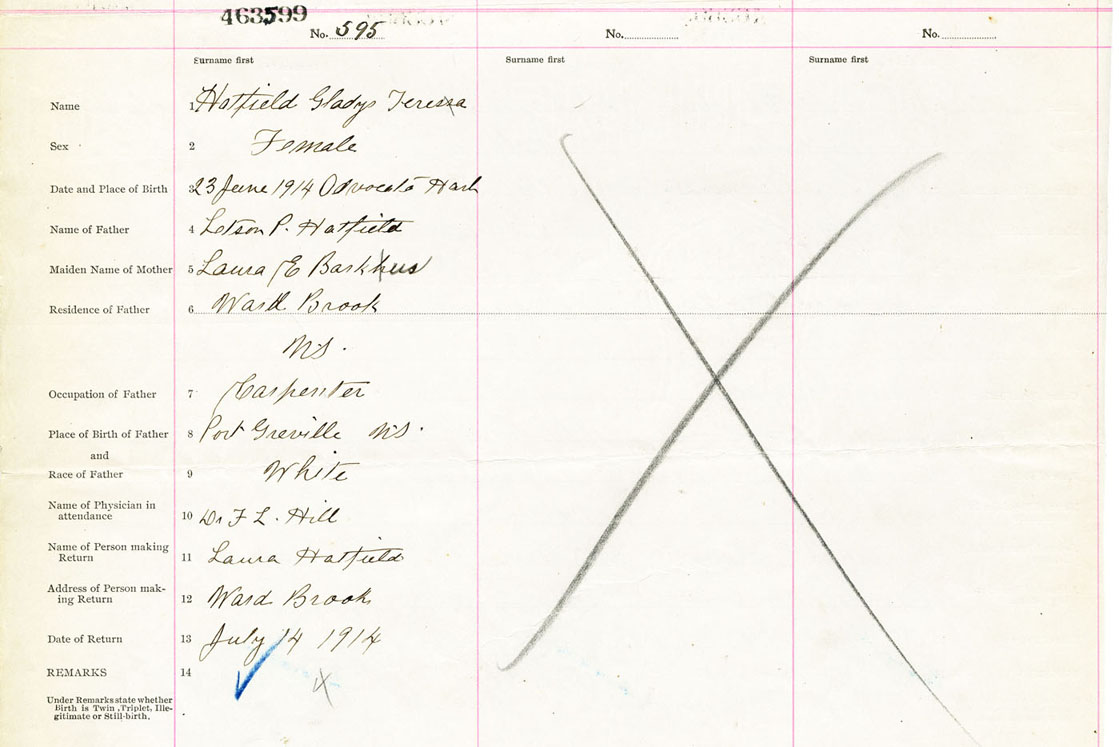 463599
No. 595
No.
No.
Surname first
Surname first
Surname first
Name 1 Hatfield Gladys Teresa
Sex 2 Female
Date and Place of Birth 3 23 June 1914 Advocate Harb
Name of Father 4 Letson P. Hatfield
Maiden Name of Mother 5 Laura E
Residence of Father 6 Ward Brook
N.S.
Occupation of Father 7 Carpenter
Place of Birth of Father 8 Port Greville N.S.
and
Race of Father 9 White
Name of Physician in
attendance 10 Dr F L. Hill
Name of Person making
Return 11 Laura Hatfield
Address of Person mak-
ing Return 12 Ward Brook
Date of Return 13 July 14 1914
REMARKS 14
Under Remarks state whether
Birth is Twin, Triplet, Ille-
gitimate or Still-birth.